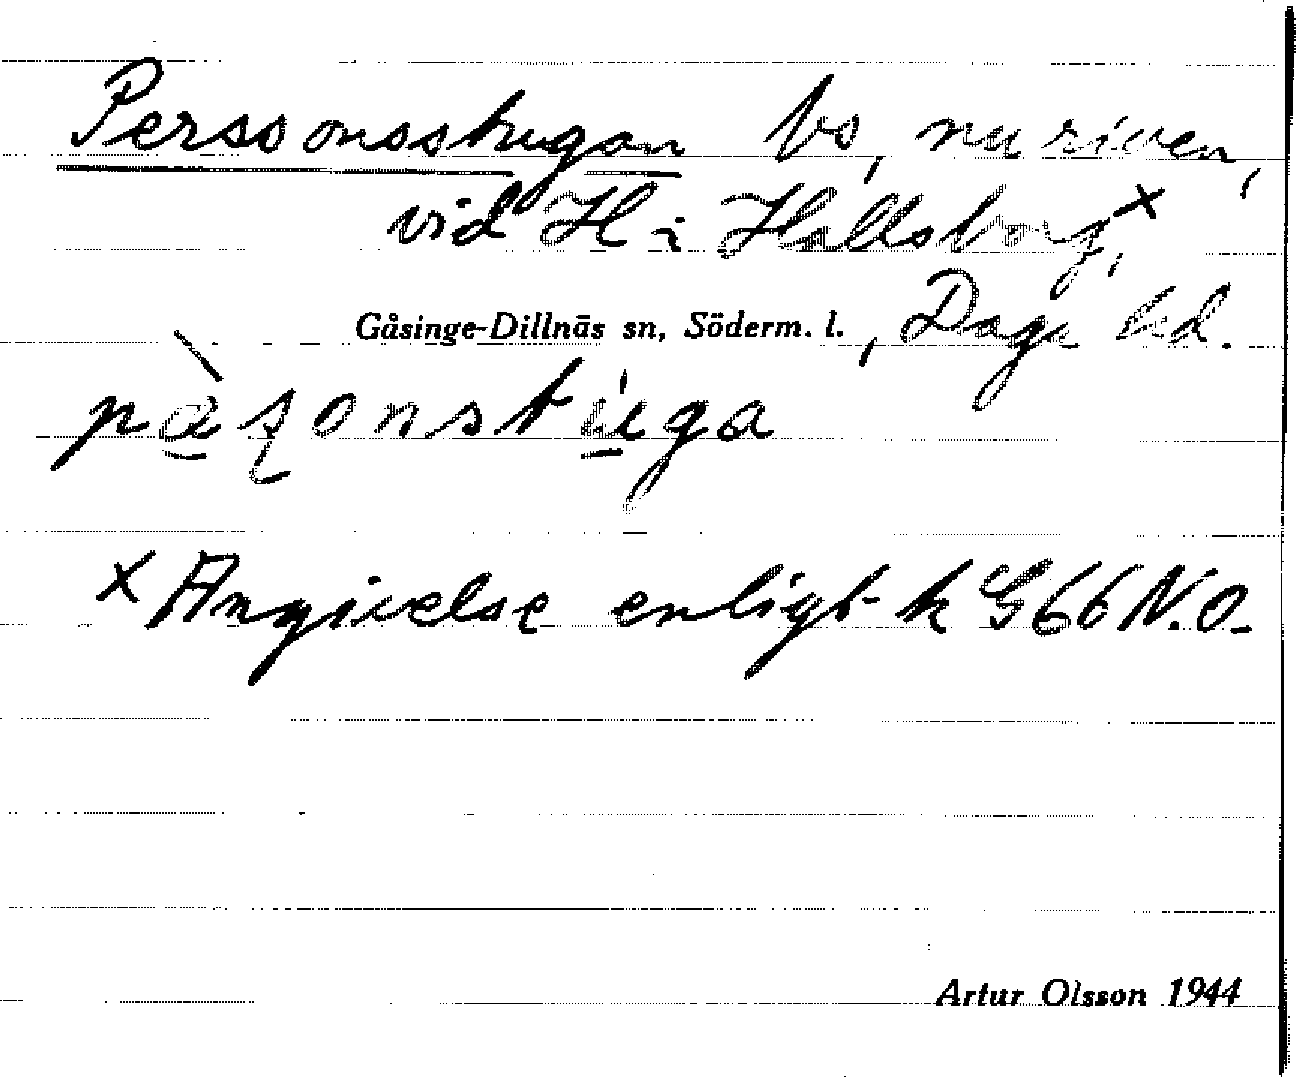 Perssonsstugan bs, nu riven,
vid H i Hallsborg,x
Gåsinge-Dillnäs sn, Söderm. l., Daga hd.
pàʂonstúga
x Angivelse enligt k G66 N.O.
Artur Olsson 1944